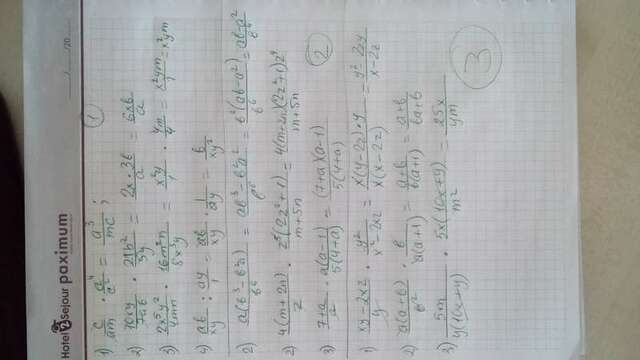 Hotel Sejour paximum
/ /20
1
1) c/am · a⁴/c² = a³/mc ;
2) 10xy/7ab · 21b²/5y = 2x · 3b/a = 6xb/a
3) 2x⁵y²/4mn · 16m²n/8x³y = x²y/1 · m/1 = x²ym/1 = x²ym
4) ab/xy : ay/1 = ab/xy · 1/ay = b/xy²
2) a(b³ - b²a)/b⁶ = ab³ - b²a²/b⁶ = b²(ab - a²)/b⁶ = ab - a²/b⁴
2
2) 4(m+2n)/z · z⁵(2z²+1)/m+5n = 4(m+2n)(2z²+1)z⁴/m+5n
3) 7+a/a² · a(a-1)/5(4+a) = (7+a)(a-1)/5(4+a)
1) xy - 2xz/y · y²/x² - 2xz = x(y - 2z) · y/x(x - 2z) = y² - 2zy/x - 2z
2) a(a+b)/b² · b/a(a+1) = a+b/b(a+1) = a+b/ba+b
3) 5m/y(10x+y) · 5x(10x+y)/m² = 25x/ym
3